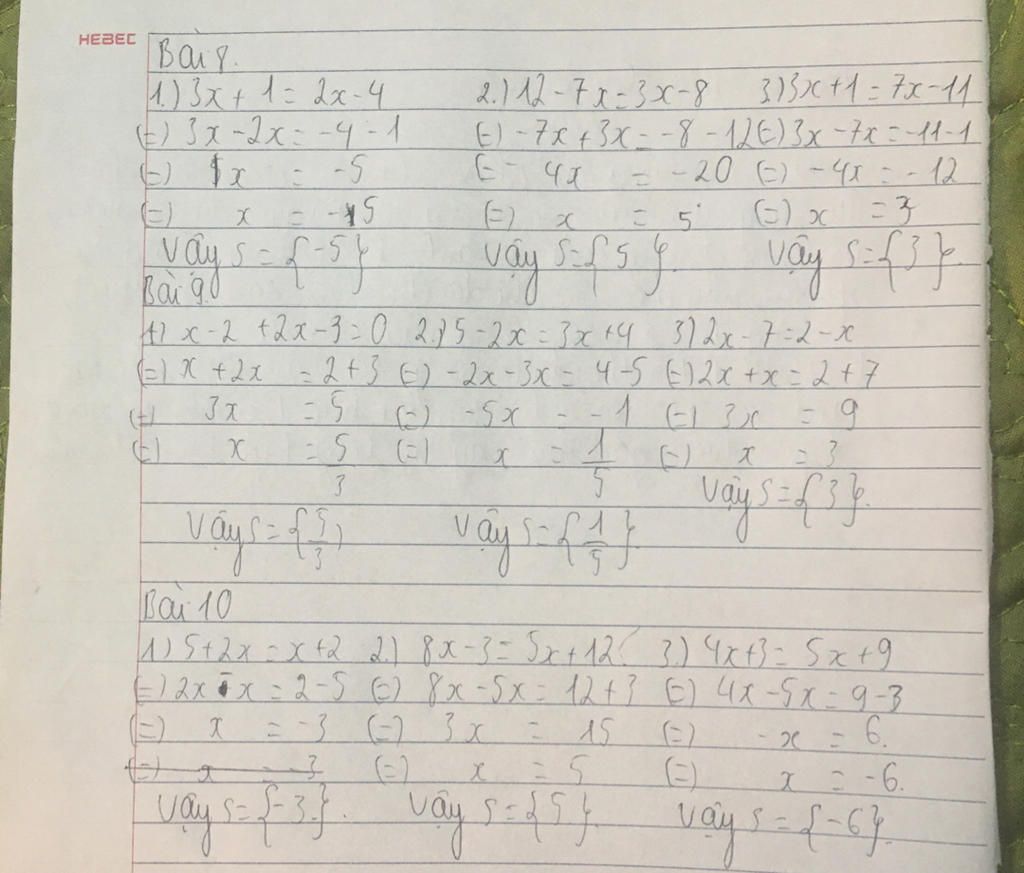 HEBEC
Bài 8.
1.) 3x + 1 = 2x - 4 2.) 12 - 7x = 3x - 8 3.) 3x + 1 = 7x - 11
(=) 3x - 2x = -4 - 1 (=) -7x + 3x = -8 - 12 (=) 3x - 7x = -11 - 1
(=) x = -5 (= - 4x = -20 (=) -4x = -12
(=) x = -5 (=) x = 5 (=) x = 3
Vậy S = {-5} Vậy S = {5}. Vậy S = {3}.
Bài 9.
1) x - 2 + 2x - 3 = 0 2.) 5 - 2x = 3x + 4 3) 2x - 7 = 2 - x
(=) x + 2x = 2 + 3 (=) -2x - 3x = 4 - 5 (=) 2x + x = 2 + 7
(=) 3x = 5 (=) -5x = -1 (=) 3x = 9
(=) x = 5/3 (=) x = 1/5 (=) x = 3
Vậy S = {3}.
Vậy S = {5/3} Vậy S = {1/5}.
Bài 10
1) 5 + 2x = x + 2 2.) 8x - 3 = 5x + 12 3.) 4x + 3 = 5x + 9
(=) 2x - x = 2 - 5 (=) 8x - 5x = 12 + 3 (=) 4x - 5x = 9 - 3
(=) x = -3 (=) 3x = 15 (=) -x = 6.
(=) x = -3 (=) x = 5 (=) x = -6.
Vậy S = {-3.}. Vậy S = {5}. Vậy S = {-6}.